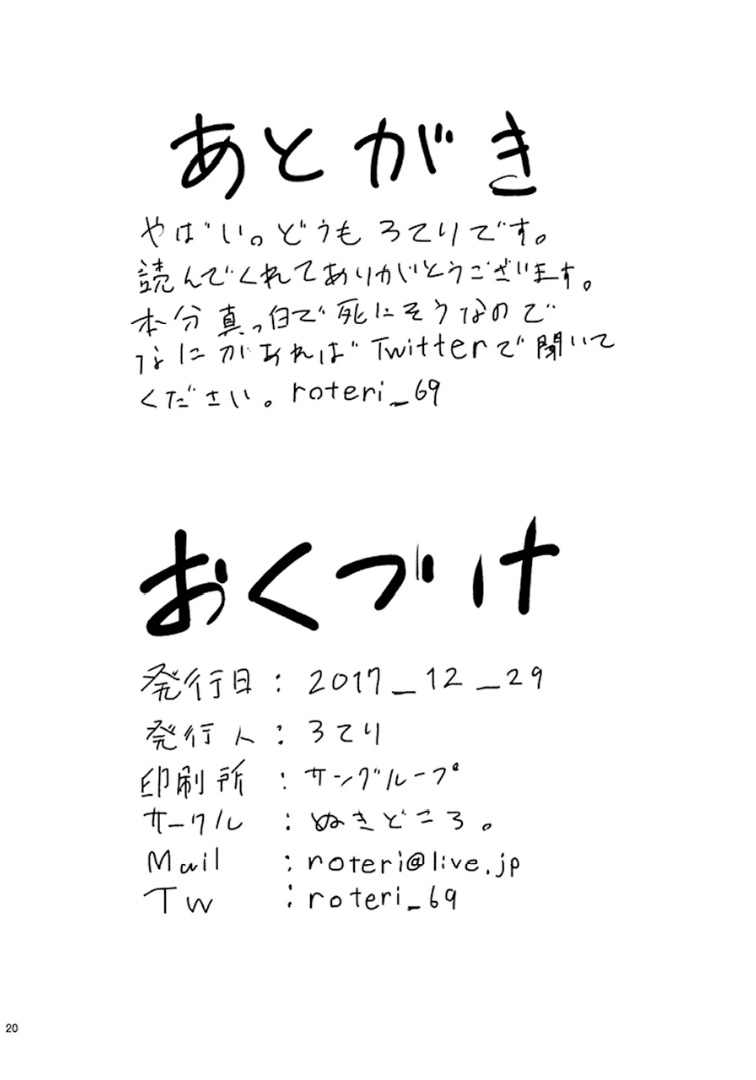 あとがき
やばい。どうも ろてりです。
読んでくれてありがとうございます。
本分真っ白で死にそうなので
なにかあればTwitterで聞いて
ください。roteri_69
おくづけ
発行日：2017_12_29
発行人：ろてり
印刷所：サングループ
サークル：ぬきどころ。
Mail：roteri@live.jp
Tw：roteri_69
20